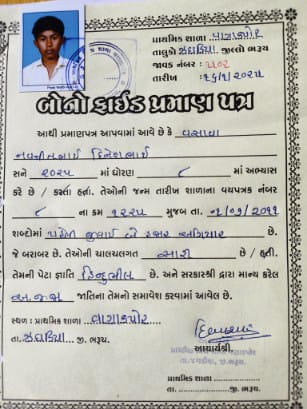 પ્રાથમિક શાળા વાઘાકપોર
તાલુકો ઝઘડિયા જીલ્લો ભરૂચ
જાવક નંબર : ૫૦૨
તારીખ
બોનોફાઈડ પ્રમાણ પત્ર
આથી પ્રમાણપત્ર આપવામાં આવે છે કે વસાવા
નવનીતભાઈ દિનેશભાઈ
સને ૨૦૨૫ માં ધોરણ ૮ માં અભ્યાસ
કરે છે / કરતા હતા. તેઓની જન્મ તારીખ શાળાના વયપત્રક નંબર
૮ ના ક્રમ ૧૨૨૫ મુજબ તા.
શબ્દોમાં પહેલી જુલાઈ બે હજાર અગિયાર છે.
જે બરાબર છે. તેઓની ચાલચલગત સારી છે / હતી.
તેમની પેટા જ્ઞાતિ હિન્દુભીલ છે. અને સરકારશ્રી દ્વારા માન્ય કરેલ
જાતિના તેમનો સમાવેશ કરવામાં આવેલ છે.
સ્થળ : પ્રાથમિક શાળા વાઘાકપોર
તા. ઝઘડિયા જી. ભરૂચ.
આચાર્યશ્રી.
પ્રાથમિક શાળા
તા. જી. ભરૂચ.